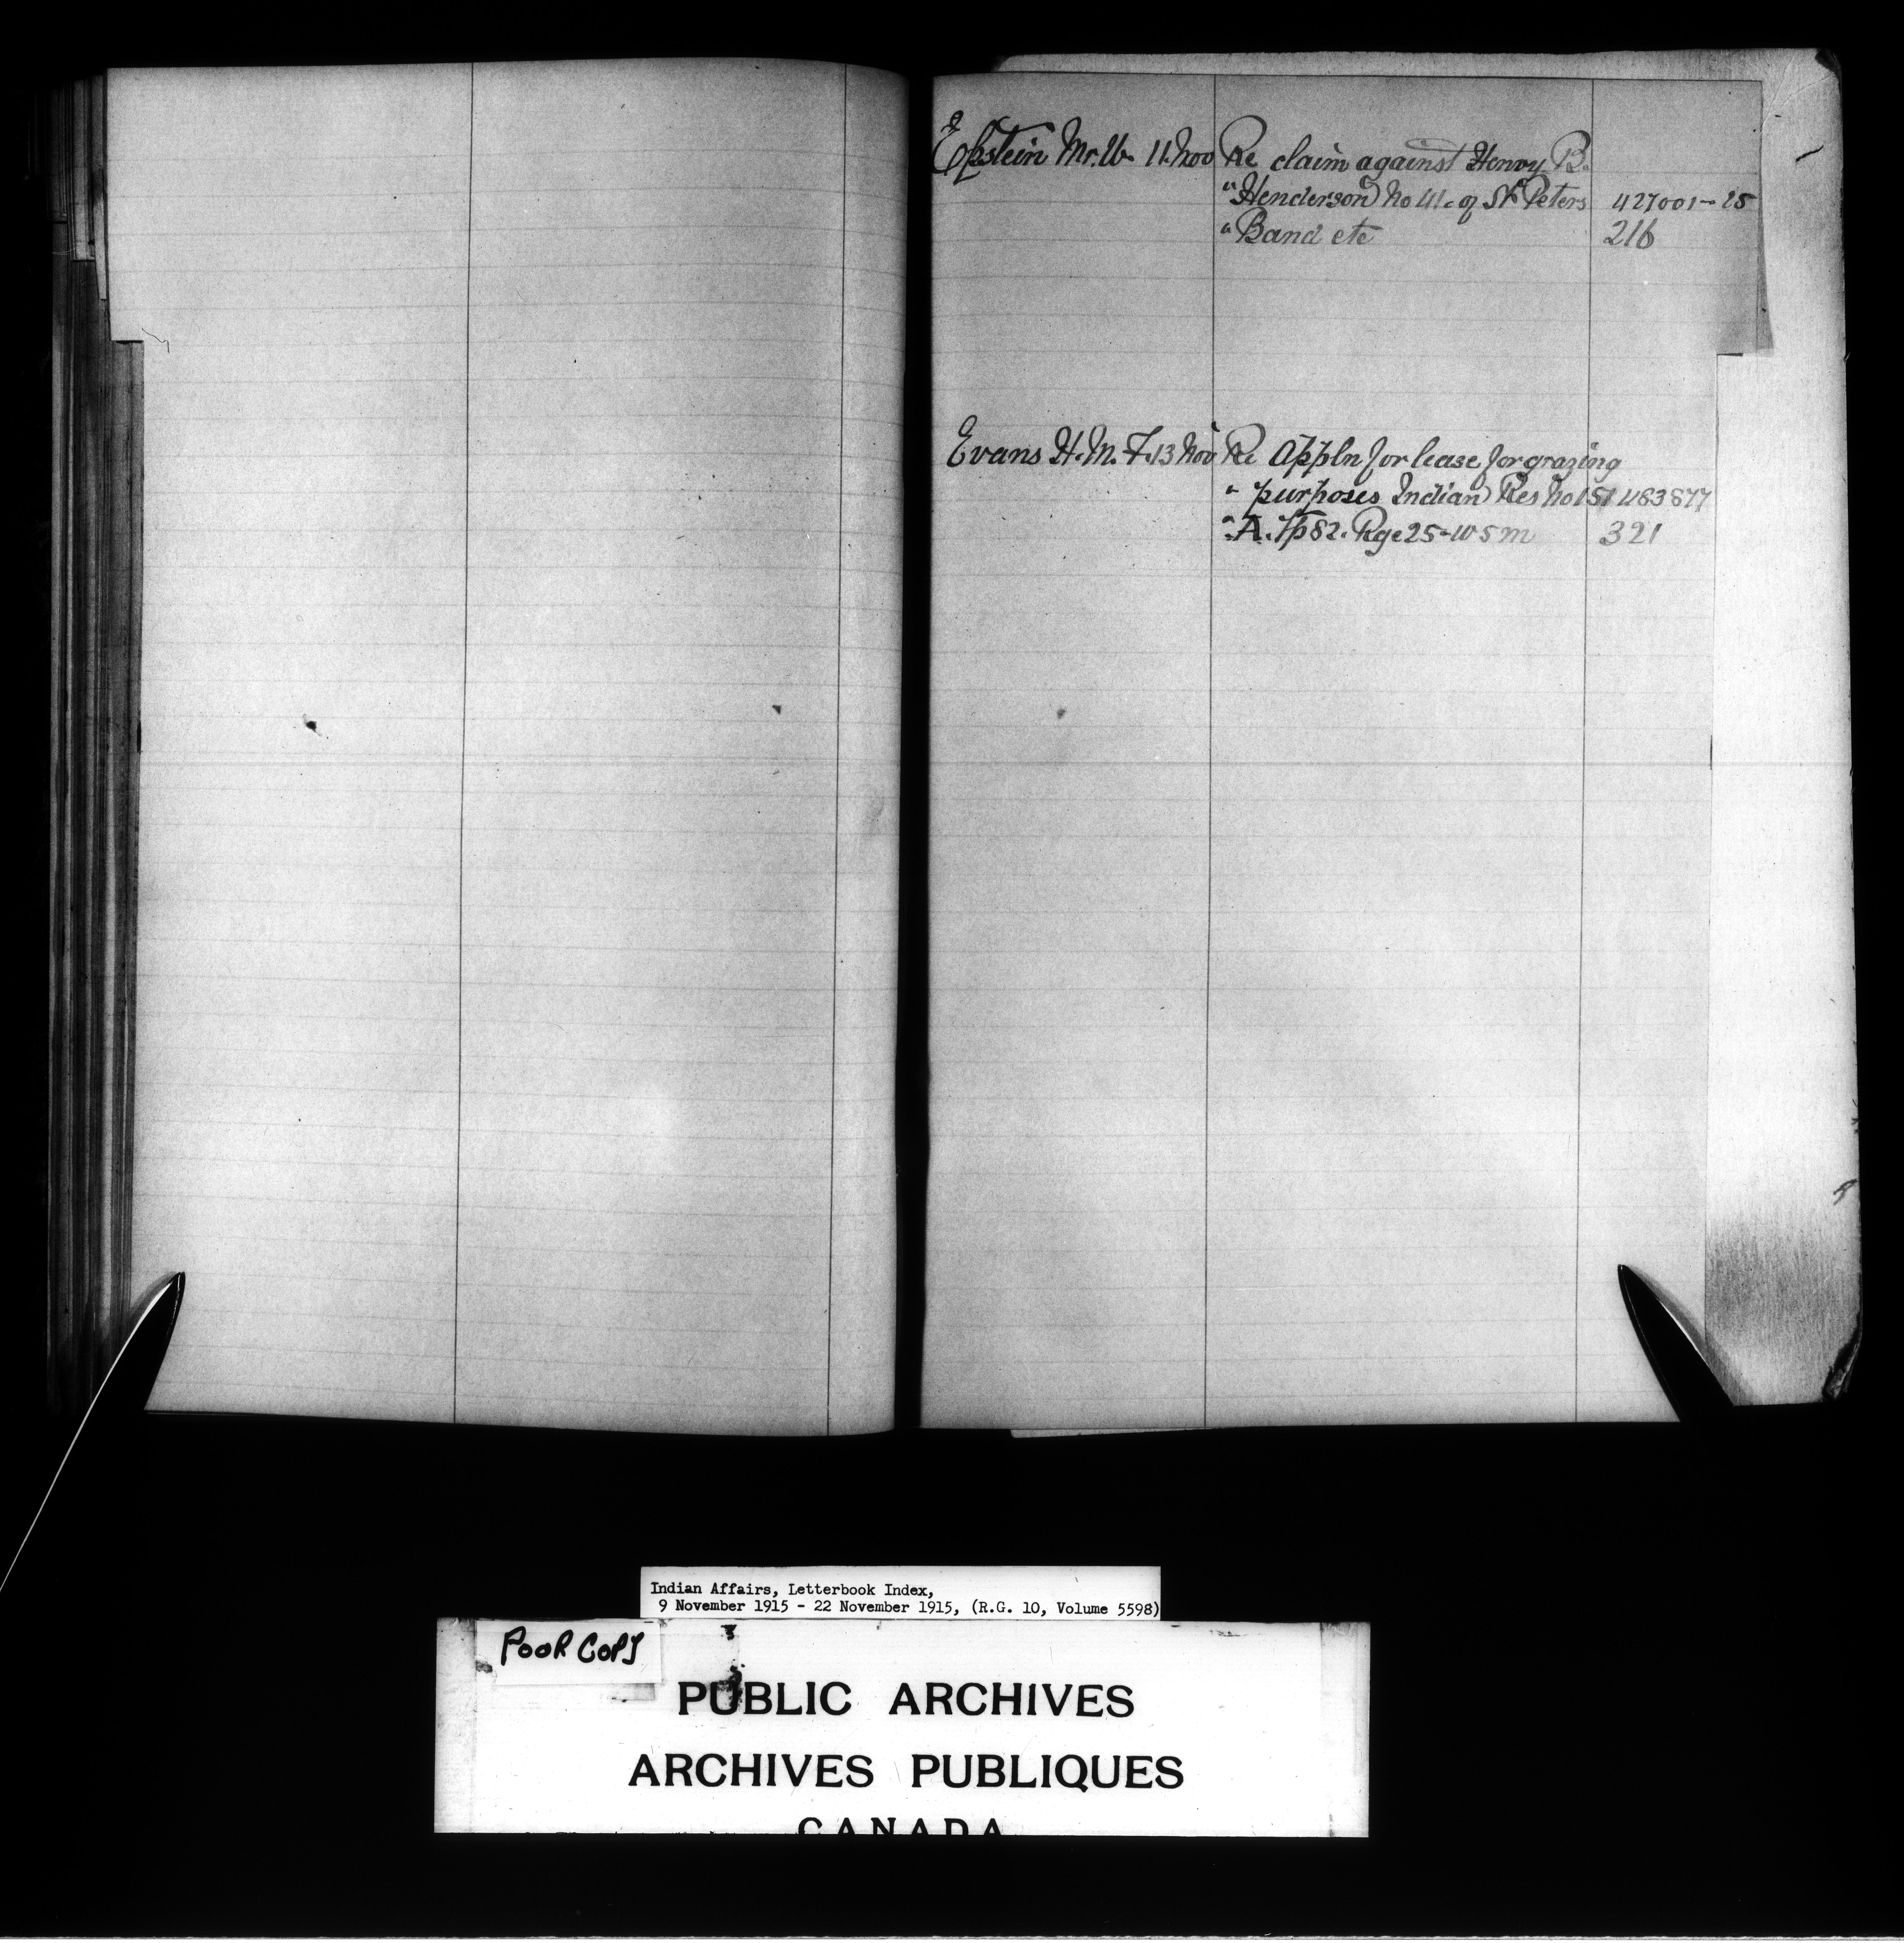 Epstein Mr. U. 11. Nov Re claim against Henry B.
" Henderson No 41. of St Peters 427001-25
" Band etc 216
Evans H. M. F. 13 Nov Re Appln for lease for grazing
" purposes Indian Res No 151 483877
" A. Tp 82. Rge 25-W 5 m 321
Indian Affairs, Letterbook Index,
9 November 1915 - 22 November 1915, (R.G. 10, Volume 5598)
POOR COPY
PUBLIC ARCHIVES
ARCHIVES PUBLIQUES
CANADA